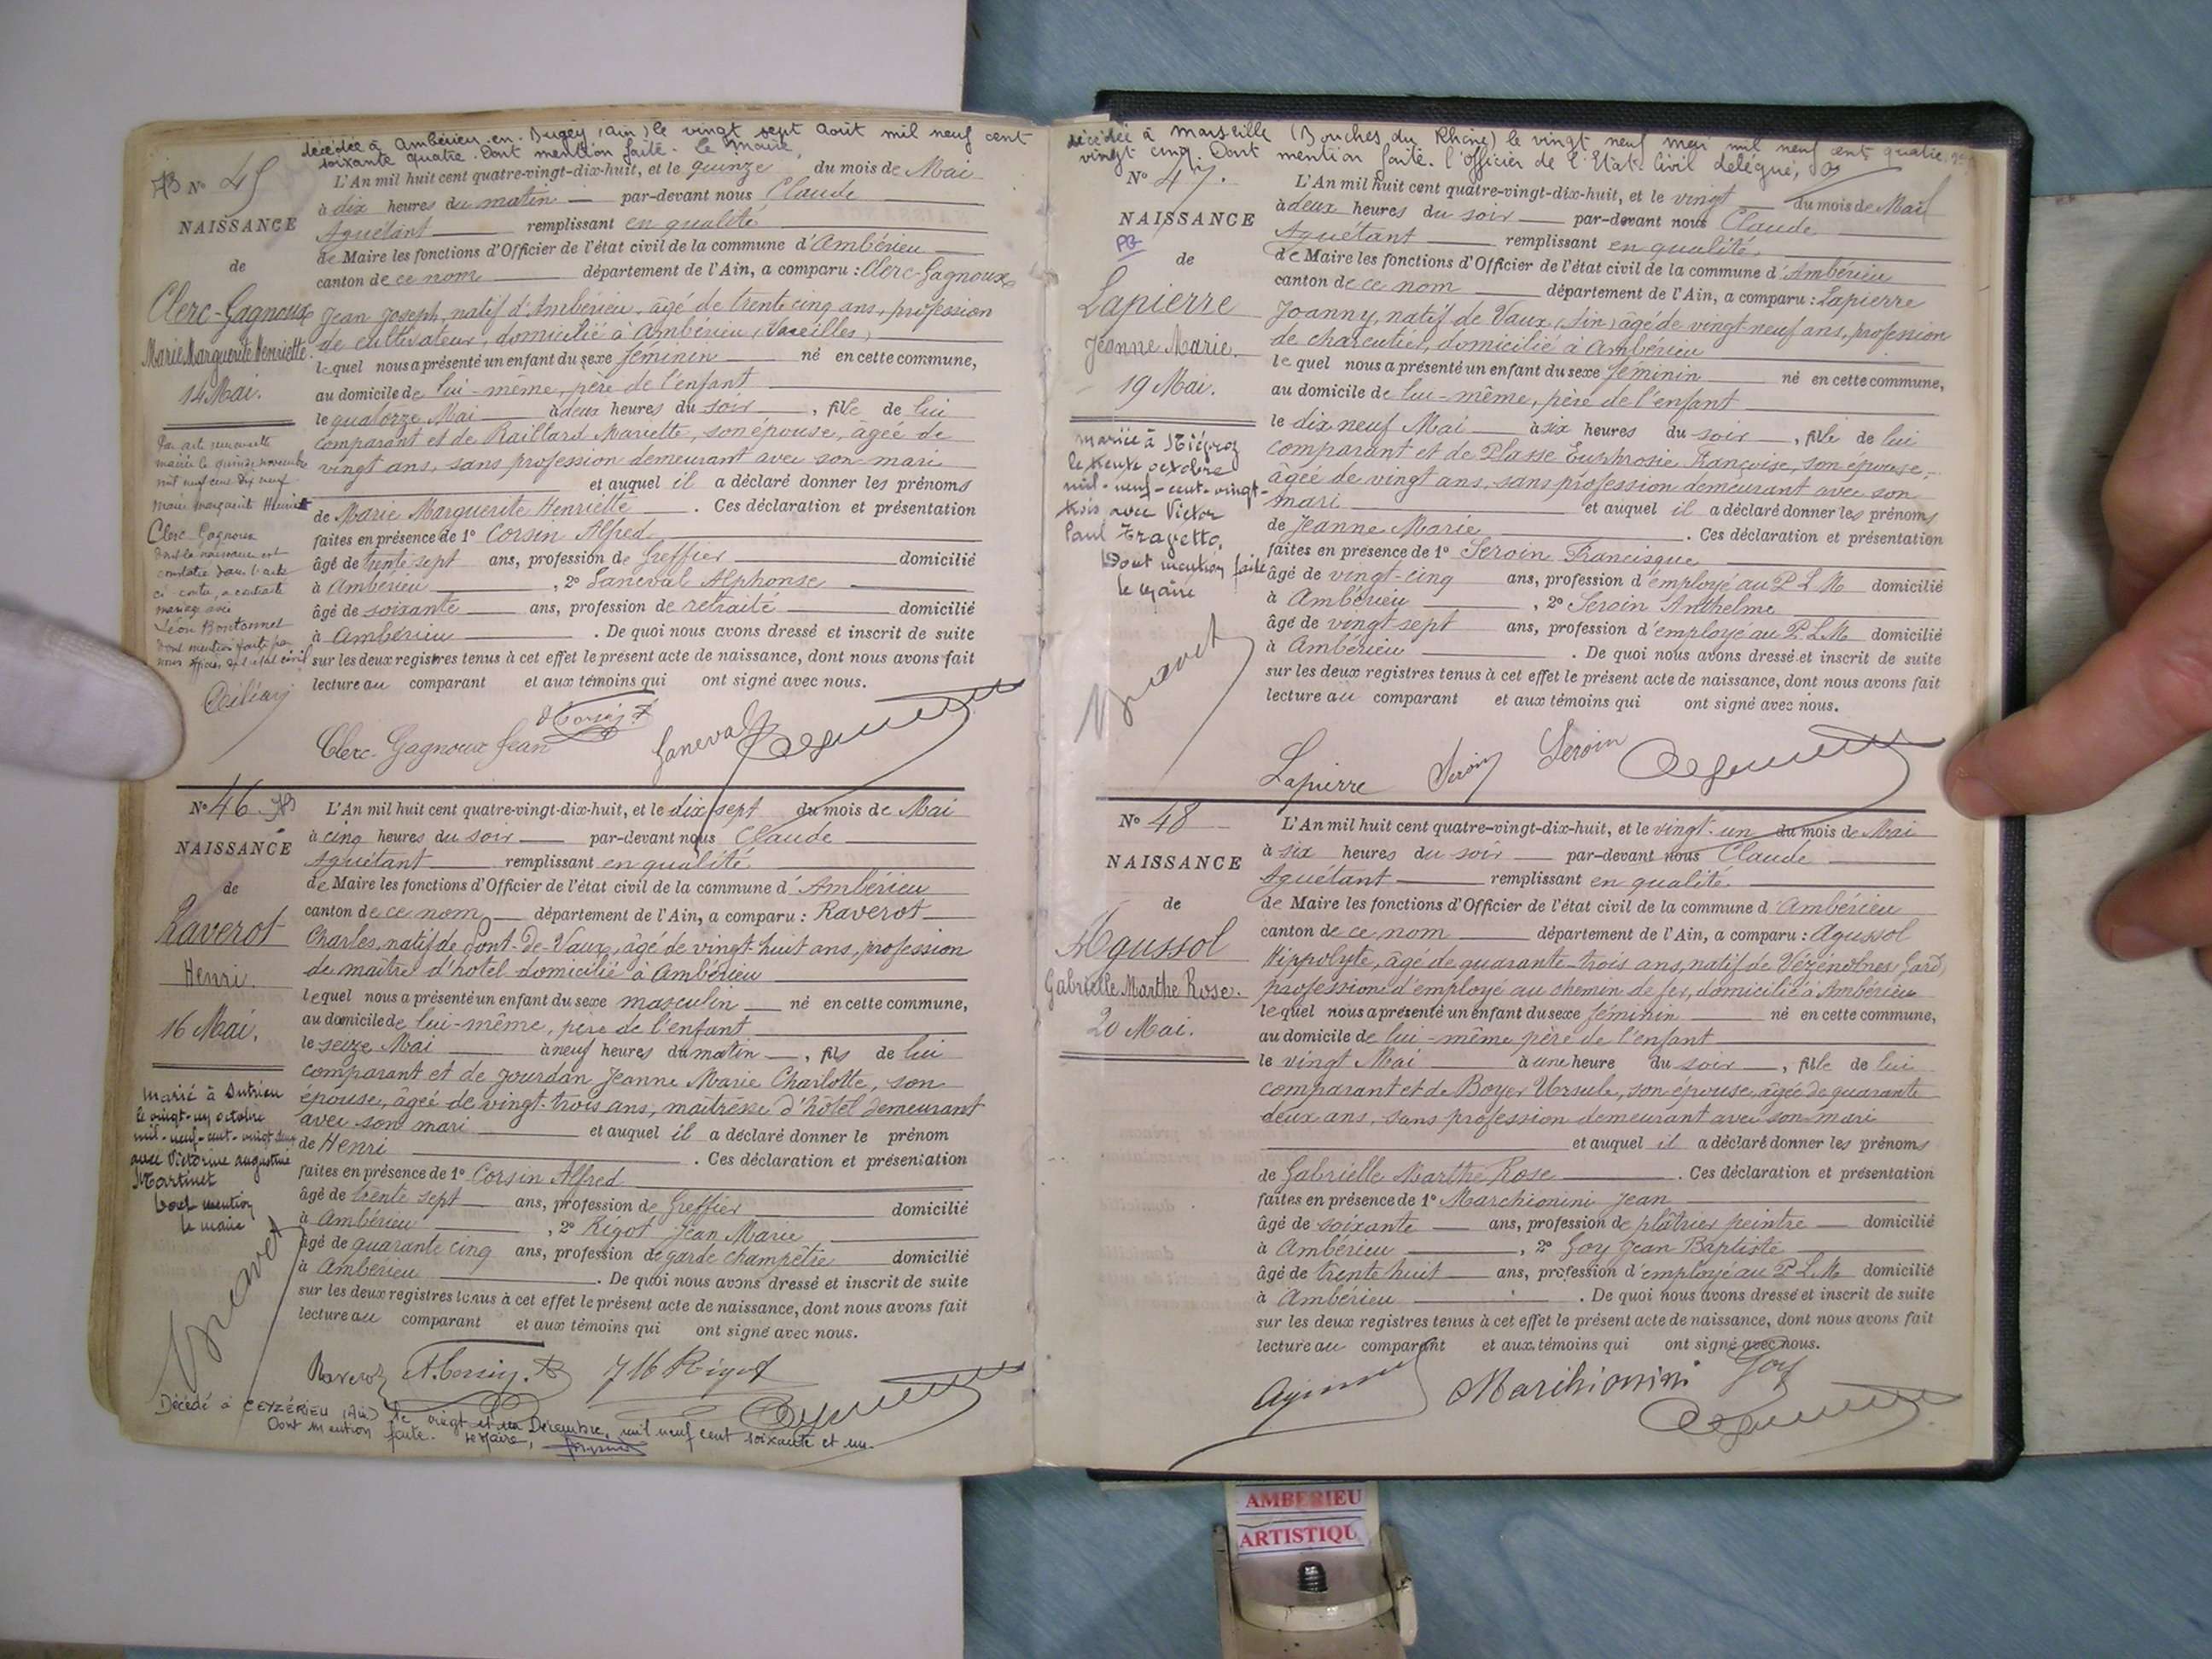 décédée à Ambérieu-en-Bugey (Ain) le vingt sept Août mil neuf cent
soixante quatre. Dont mention faite. Le Maire,
N° 45
NAISSANCE
de
Clerc-Gagnoux
Marie Marguerite Henriette.
14 Mai.
mil neuf cent dix neuf
Marie Marguerite Henriette
Clerc Gagnoux
dont la naissance est
constatée dans l'acte
ci contre, a contracté
mariage avec
Léon Bontonnet
dont mention faite par
nous officier de l'état civil
L'An mil huit cent quatre-vingt-dix-huit, et le quinze du mois de Mai
à dix heures du matin par-devant nous Claude
Aguétant remplissant en qualité
de Maire les fonctions d'Officier de l'état civil de la commune d'Ambérieu
canton de ce nom département de l'Ain, a comparu : Clerc-Gagnoux
Jean Joseph, natif d'Ambérieu, âgé de trente cinq ans, profession
de cultivateur, domicilié à Ambérieu (Vareilles)
lequel nous a présenté un enfant du sexe féminin né en cette commune,
au domicile de lui-même, père de l'enfant
le quatorze Mai à deux heures du soir, fille de lui
comparant et de Raillard Mariette, son épouse, âgée de
vingt ans, sans profession demeurant avec son mari
et auquel il a déclaré donner les prénoms
de Marie Marguerite Henriette. Ces déclaration et présentation
faites en présence de 1° Corsin Alfred
âgé de trente sept ans, profession de Greffier domicilié
à Ambérieu, 2° Janeval Alphonse
âgé de soixante ans, profession de retraité domicilié
à Ambérieu. De quoi nous avons dressé et inscrit de suite
sur les deux registres tenus à cet effet le présent acte de naissance, dont nous avons fait
lecture au comparant et aux témoins qui ont signé avec nous.
Clerc-Gagnoux Jean A Corsin Janeval
N° 46
NAISSANCE
de
Raverot
Henri.
16 Mai.
Marié à Lutrieu
le vingt-un octobre
mil-neuf-cent-vingt
avec Victorine Augustine
Martinet
Dont mention
le maire
Bravet
L'An mil huit cent quatre-vingt-dix-huit, et le dix sept du mois de Mai
à cinq heures du soir par-devant nous Claude
Aguétant remplissant en qualité
de Maire les fonctions d'Officier de l'état civil de la commune d'Ambérieu
canton de ce nom département de l'Ain, a comparu : Raverot
Charles, natif de Pont-de-Vaux, âgé de vingt-huit ans, profession
de maître d'hôtel domicilié à Ambérieu
lequel nous a présenté un enfant du sexe masculin né en cette commune,
au domicile de lui-même, père de l'enfant
le seize Mai à neuf heures du matin, fils de lui
comparant et de Jourdan Jeanne Marie Charlotte, son
épouse, âgée de vingt-trois ans, maîtresse d'hôtel demeurant
avec son mari et auquel il a déclaré donner le prénom
de Henri. Ces déclaration et présentation
faites en présence de 1° Corsin Alfred
âgé de trente sept ans, profession de Greffier domicilié
à Ambérieu, 2° Rigot Jean Marie
âgé de quarante cinq ans, profession de garde champêtre domicilié
à Ambérieu. De quoi nous avons dressé et inscrit de suite
sur les deux registres tenus à cet effet le présent acte de naissance, dont nous avons fait
lecture au comparant et aux témoins qui ont signé avec nous.
Raverot A. Corsin Rigot
Décédé à CEYZÉRIEU (Ain) le vingt et un Décembre, mil neuf cent soixante et un.
Dont mention faite. Le Maire,
décédée à Marseille (Bouches du Rhône) le vingt neuf mai mil neuf cent quatre
vingt cinq. Dont mention faite. l'Officier de l'Etat-Civil délégué,
N° 47.
NAISSANCE
PB
de
Lapierre
Jeanne Marie.
19 Mai.
Mariée à
le trente octobre
mil-neuf-cent-vingt-
trois avec Victor
Paul Fragetto.
Dont mention faite
le maire
Bravet
L'An mil huit cent quatre-vingt-dix-huit, et le vingt du mois de Mai
à deux heures du soir par-devant nous Claude
Aguétant remplissant en qualité
de Maire les fonctions d'Officier de l'état civil de la commune d'Ambérieu
canton de ce nom département de l'Ain, a comparu : Lapierre
Joanny, natif de Vaux (Ain) âgé de vingt-neuf ans, profession
de charcutier, domicilié à Ambérieu
lequel nous a présenté un enfant du sexe féminin né en cette commune,
au domicile de lui-même, père de l'enfant
le dix neuf Mai à six heures du soir, fille de lui
comparant et de Plasse Euphrosie Françoise, son épouse,
âgée de vingt ans, sans profession demeurant avec son
mari et auquel il a déclaré donner les prénoms
de Jeanne Marie. Ces déclaration et présentation
faites en présence de 1° Seroin Francisque
âgé de vingt-cinq ans, profession d'employé au P L M domicilié
à Ambérieu, 2° Seroin Anthelme
âgé de vingt sept ans, profession d'employé au P. L. M. domicilié
à Ambérieu. De quoi nous avons dressé et inscrit de suite
sur les deux registres tenus à cet effet le présent acte de naissance, dont nous avons fait
lecture au comparant et aux témoins qui ont signé avec nous.
Lapierre Seroin Seroin
N° 48
NAISSANCE
de
Agussol
Gabrielle Marthe Rose.
20 Mai.
L'An mil huit cent quatre-vingt-dix-huit, et le vingt-un du mois de Mai
à six heures du soir par-devant nous Claude
Aguétant remplissant en qualité
de Maire les fonctions d'Officier de l'état civil de la commune d'Ambérieu
canton de ce nom département de l'Ain, a comparu : Agussol
Hippolyte, âgé de quarante-trois ans, natif de Vézénobres (Gard)
profession d'employé au chemin de fer, domicilié à Ambérieu
lequel nous a présenté un enfant du sexe féminin né en cette commune,
au domicile de lui-même père de l'enfant
le vingt Mai à une heure du soir, fille de lui
comparant et de Boyer Ursule, son épouse, âgée de quarante
deux ans, sans profession demeurant avec son mari
et auquel il a déclaré donner les prénoms
de Gabrielle Marthe Rose. Ces déclaration et présentation
faites en présence de 1° Marchionini Jean
âgé de soixante ans, profession de plâtrier peintre domicilié
à Ambérieu, 2° Goy Jean Baptiste
âgé de trente huit ans, profession d'employé au P. L. M. domicilié
à Ambérieu. De quoi nous avons dressé et inscrit de suite
sur les deux registres tenus à cet effet le présent acte de naissance, dont nous avons fait
lecture au comparant et aux témoins qui ont signé avec nous.
Marchionini Goy
AMBERIEU
ARTISTIQU